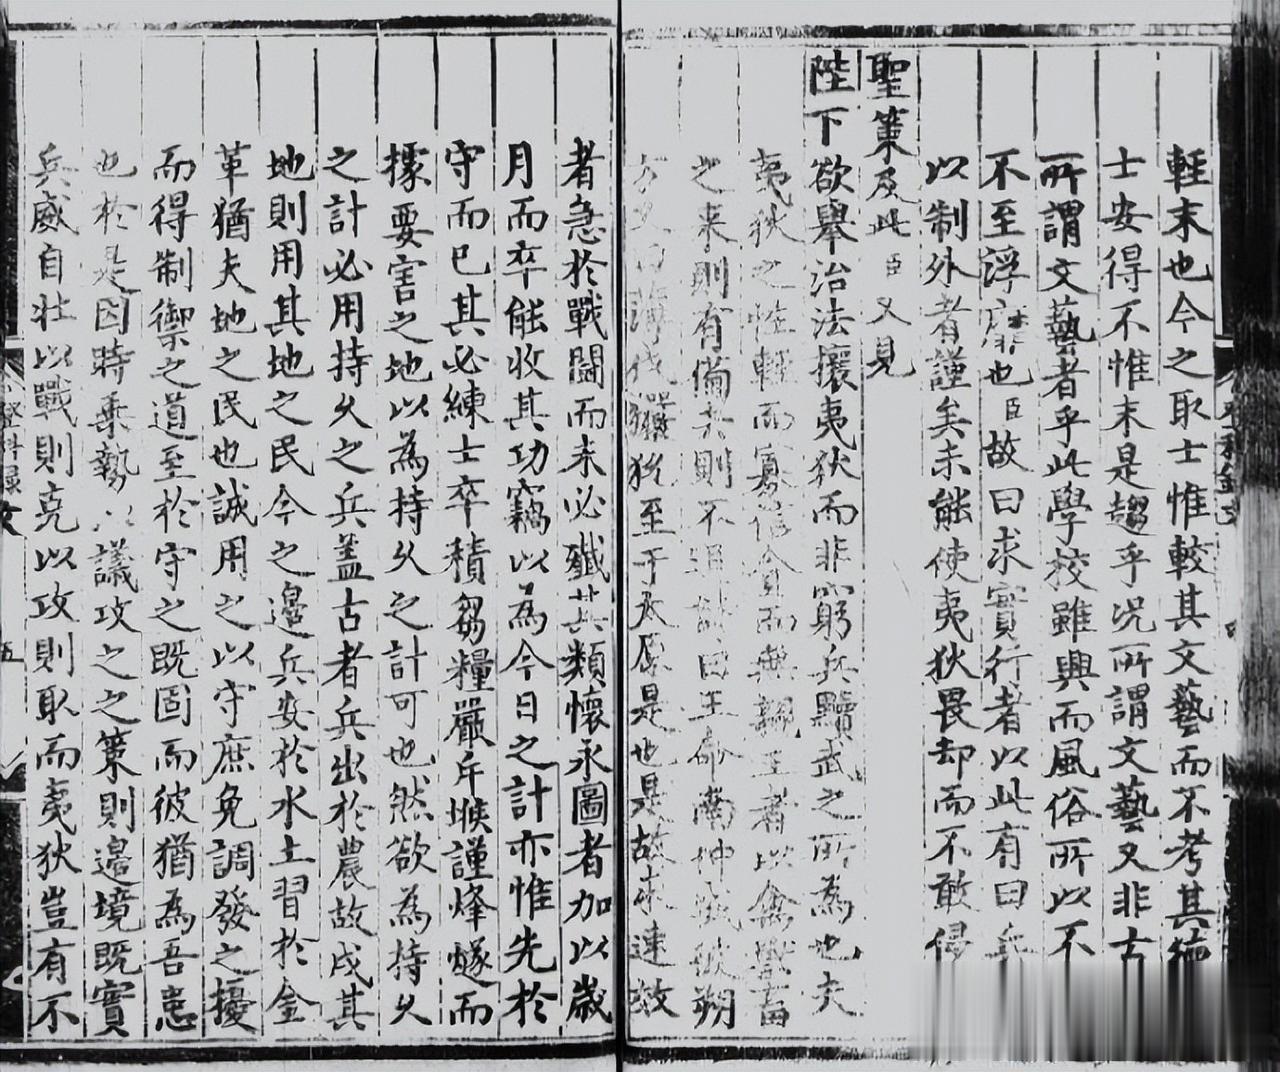 輕末也今之取士惟較其文藝而不考其德
士安得不惟末是趨乎况所謂文藝又非古
所謂文藝者乎此學校雖興而風俗所以不
不至浮靡也臣故曰求實行者以此有曰兵
以制外者謹矣未能使夷狄畏却而不敢侵
聖策及此臣又見
陛下欲舉治法攘夷狄而非窮兵黷武之所為也夫
夷狄之性輕而寡信貪而無親王者以禽獸畜
之来則有備去則不追詩曰王命南仲城彼朔
方又曰薄伐玁狁至于太原是也是故求速效
者急於戰鬪而未必殲其類懷永圖者加以歲
月而卒能收其功竊以為今日之計亦惟先於
守而已其必練士卒積芻糧嚴斥堠謹烽燧而
據要害之地以為持久之計可也然欲為持久
之計必用持久之兵盖古者兵出於農故戍其
地則用其地之民今之邉兵安於水土習於金
革猶夫地之民也誠用之以守庶免調發之擾
而得制禦之道至於守之既固而彼猶為吾患
也於是因時乗勢以議攻之之策則邉境既實
兵威自壮以戰則克以攻則取而夷狄豈有不
登科録
五